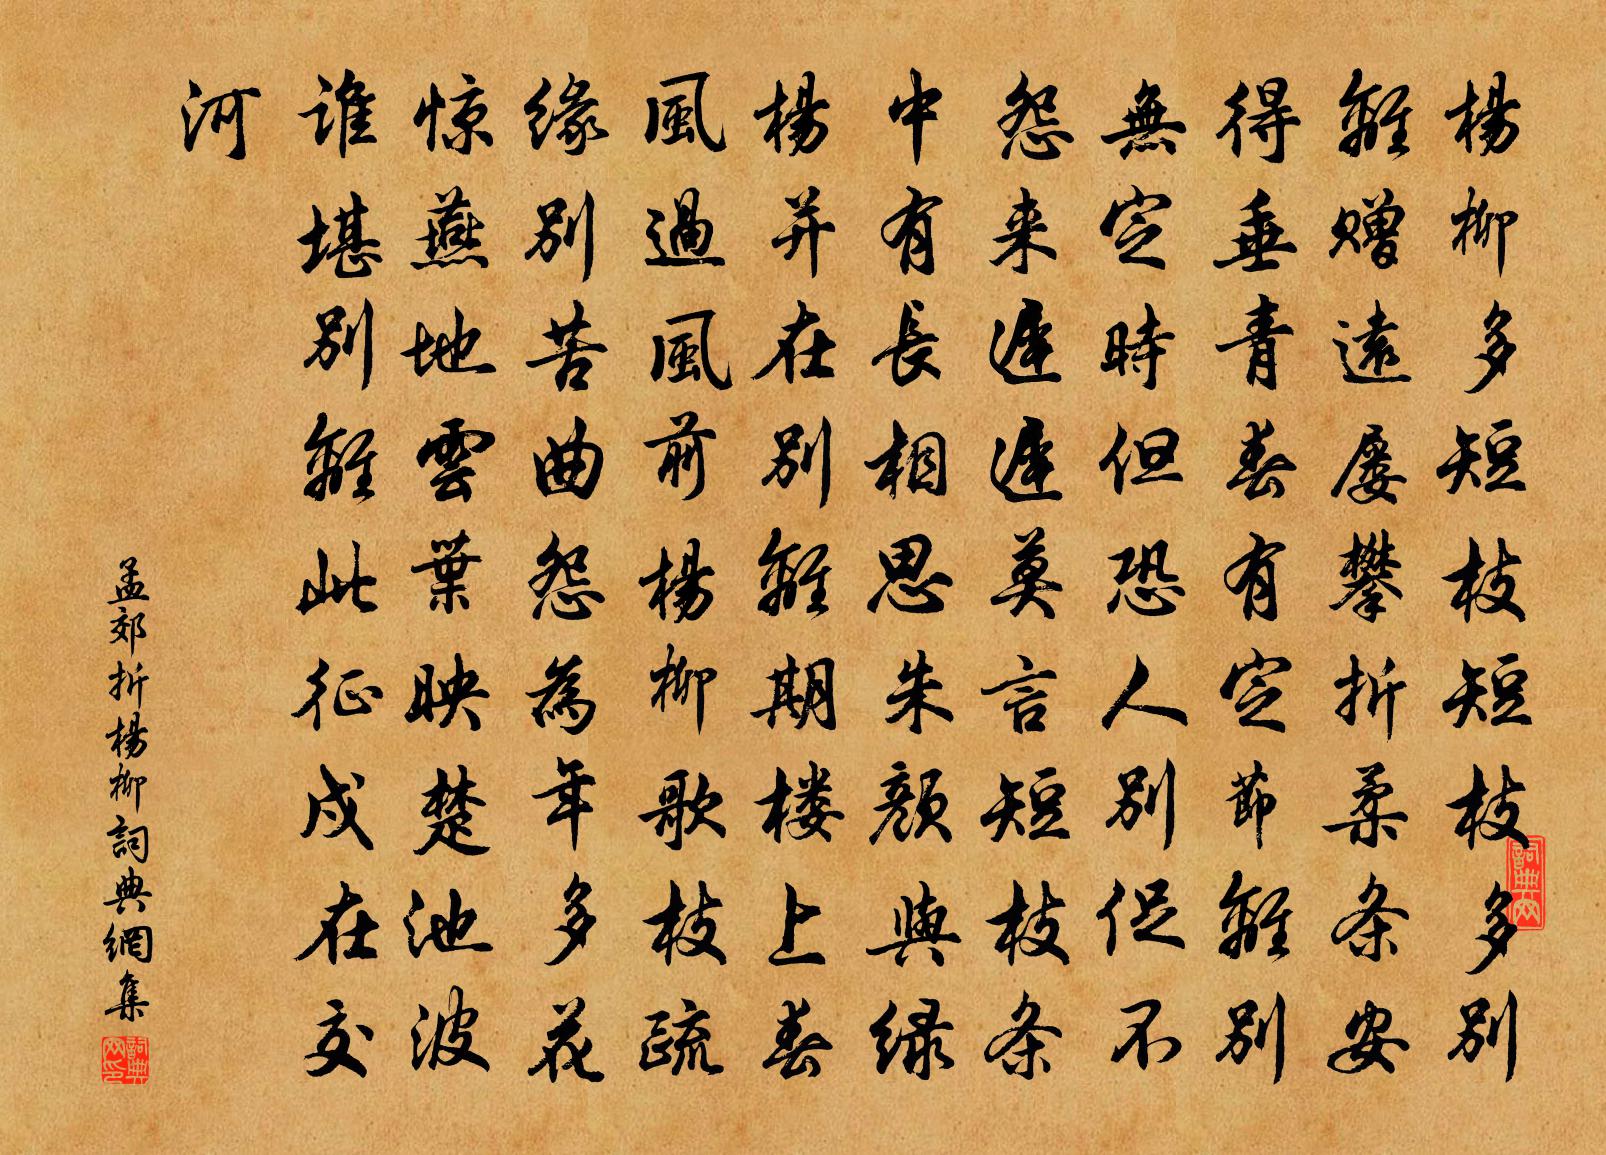 楊柳多短枝短枝多別
離贈遠屢攀折柔条安
得垂青春有定節離別
無定時但恐人別促不
怨来遲遲莫言短枝条
中有長相思朱顏與绿
楊并在別離期楼上春
風過風前楊柳歌枝疏
缘別苦曲怨為年多花
惊燕地雲葉映楚池波
谁堪別離此征戍在交
河
孟郊折楊柳詞典網集
詞典网
詞典网印